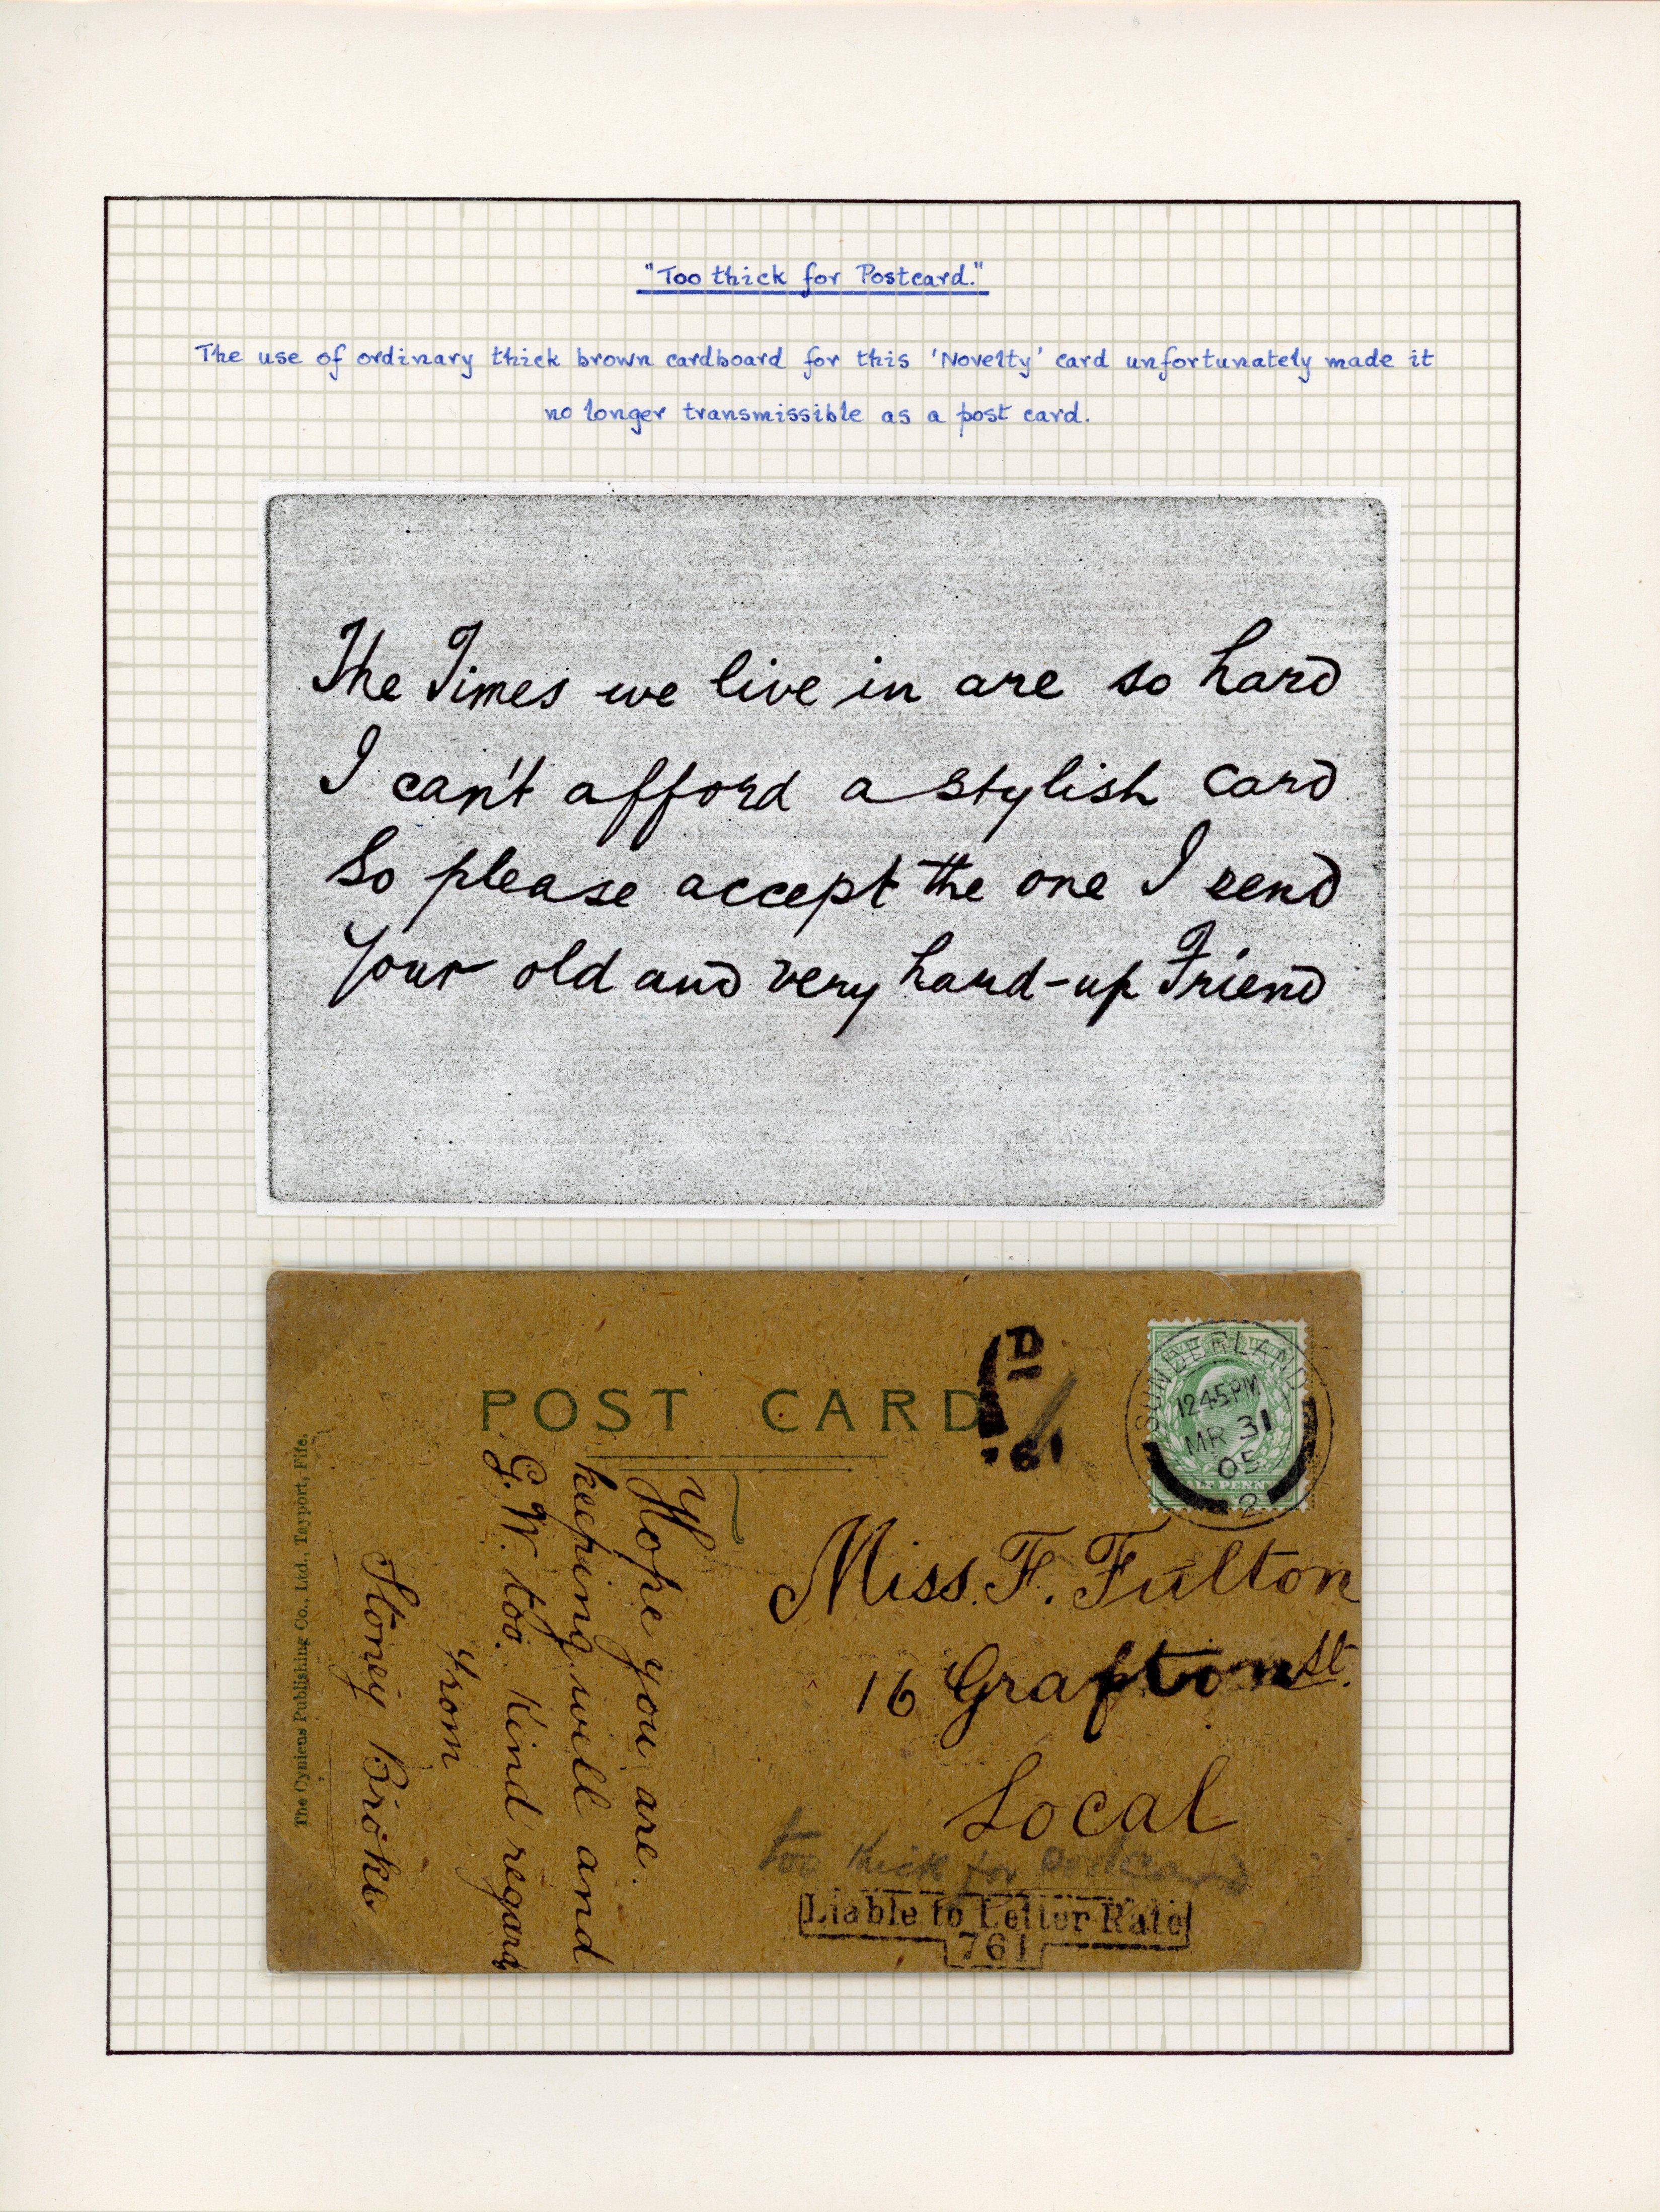 "Too thick for Postcard."
The use of ordinary thick brown cardboard for this 'Novelty' card unfortunately made it
no longer transmissible as a post card.
The Times we live in are so hard
I can't afford a stylish card
So please accept the one I send
Your old and very hard-up Friend
POST CARD
SUNDERLAND
12.45PM
MR 31
05
2
HALF PENNY
Miss. F. Fulton
16 Grafton St.
Local
too thick for postcard
Liable to Letter Rate
761
Hope you are
keeping well and
G.W. too. Kind regards
from
Stoney Broke
The Cynicus Publishing Co., Ltd., Tayport, Fife.